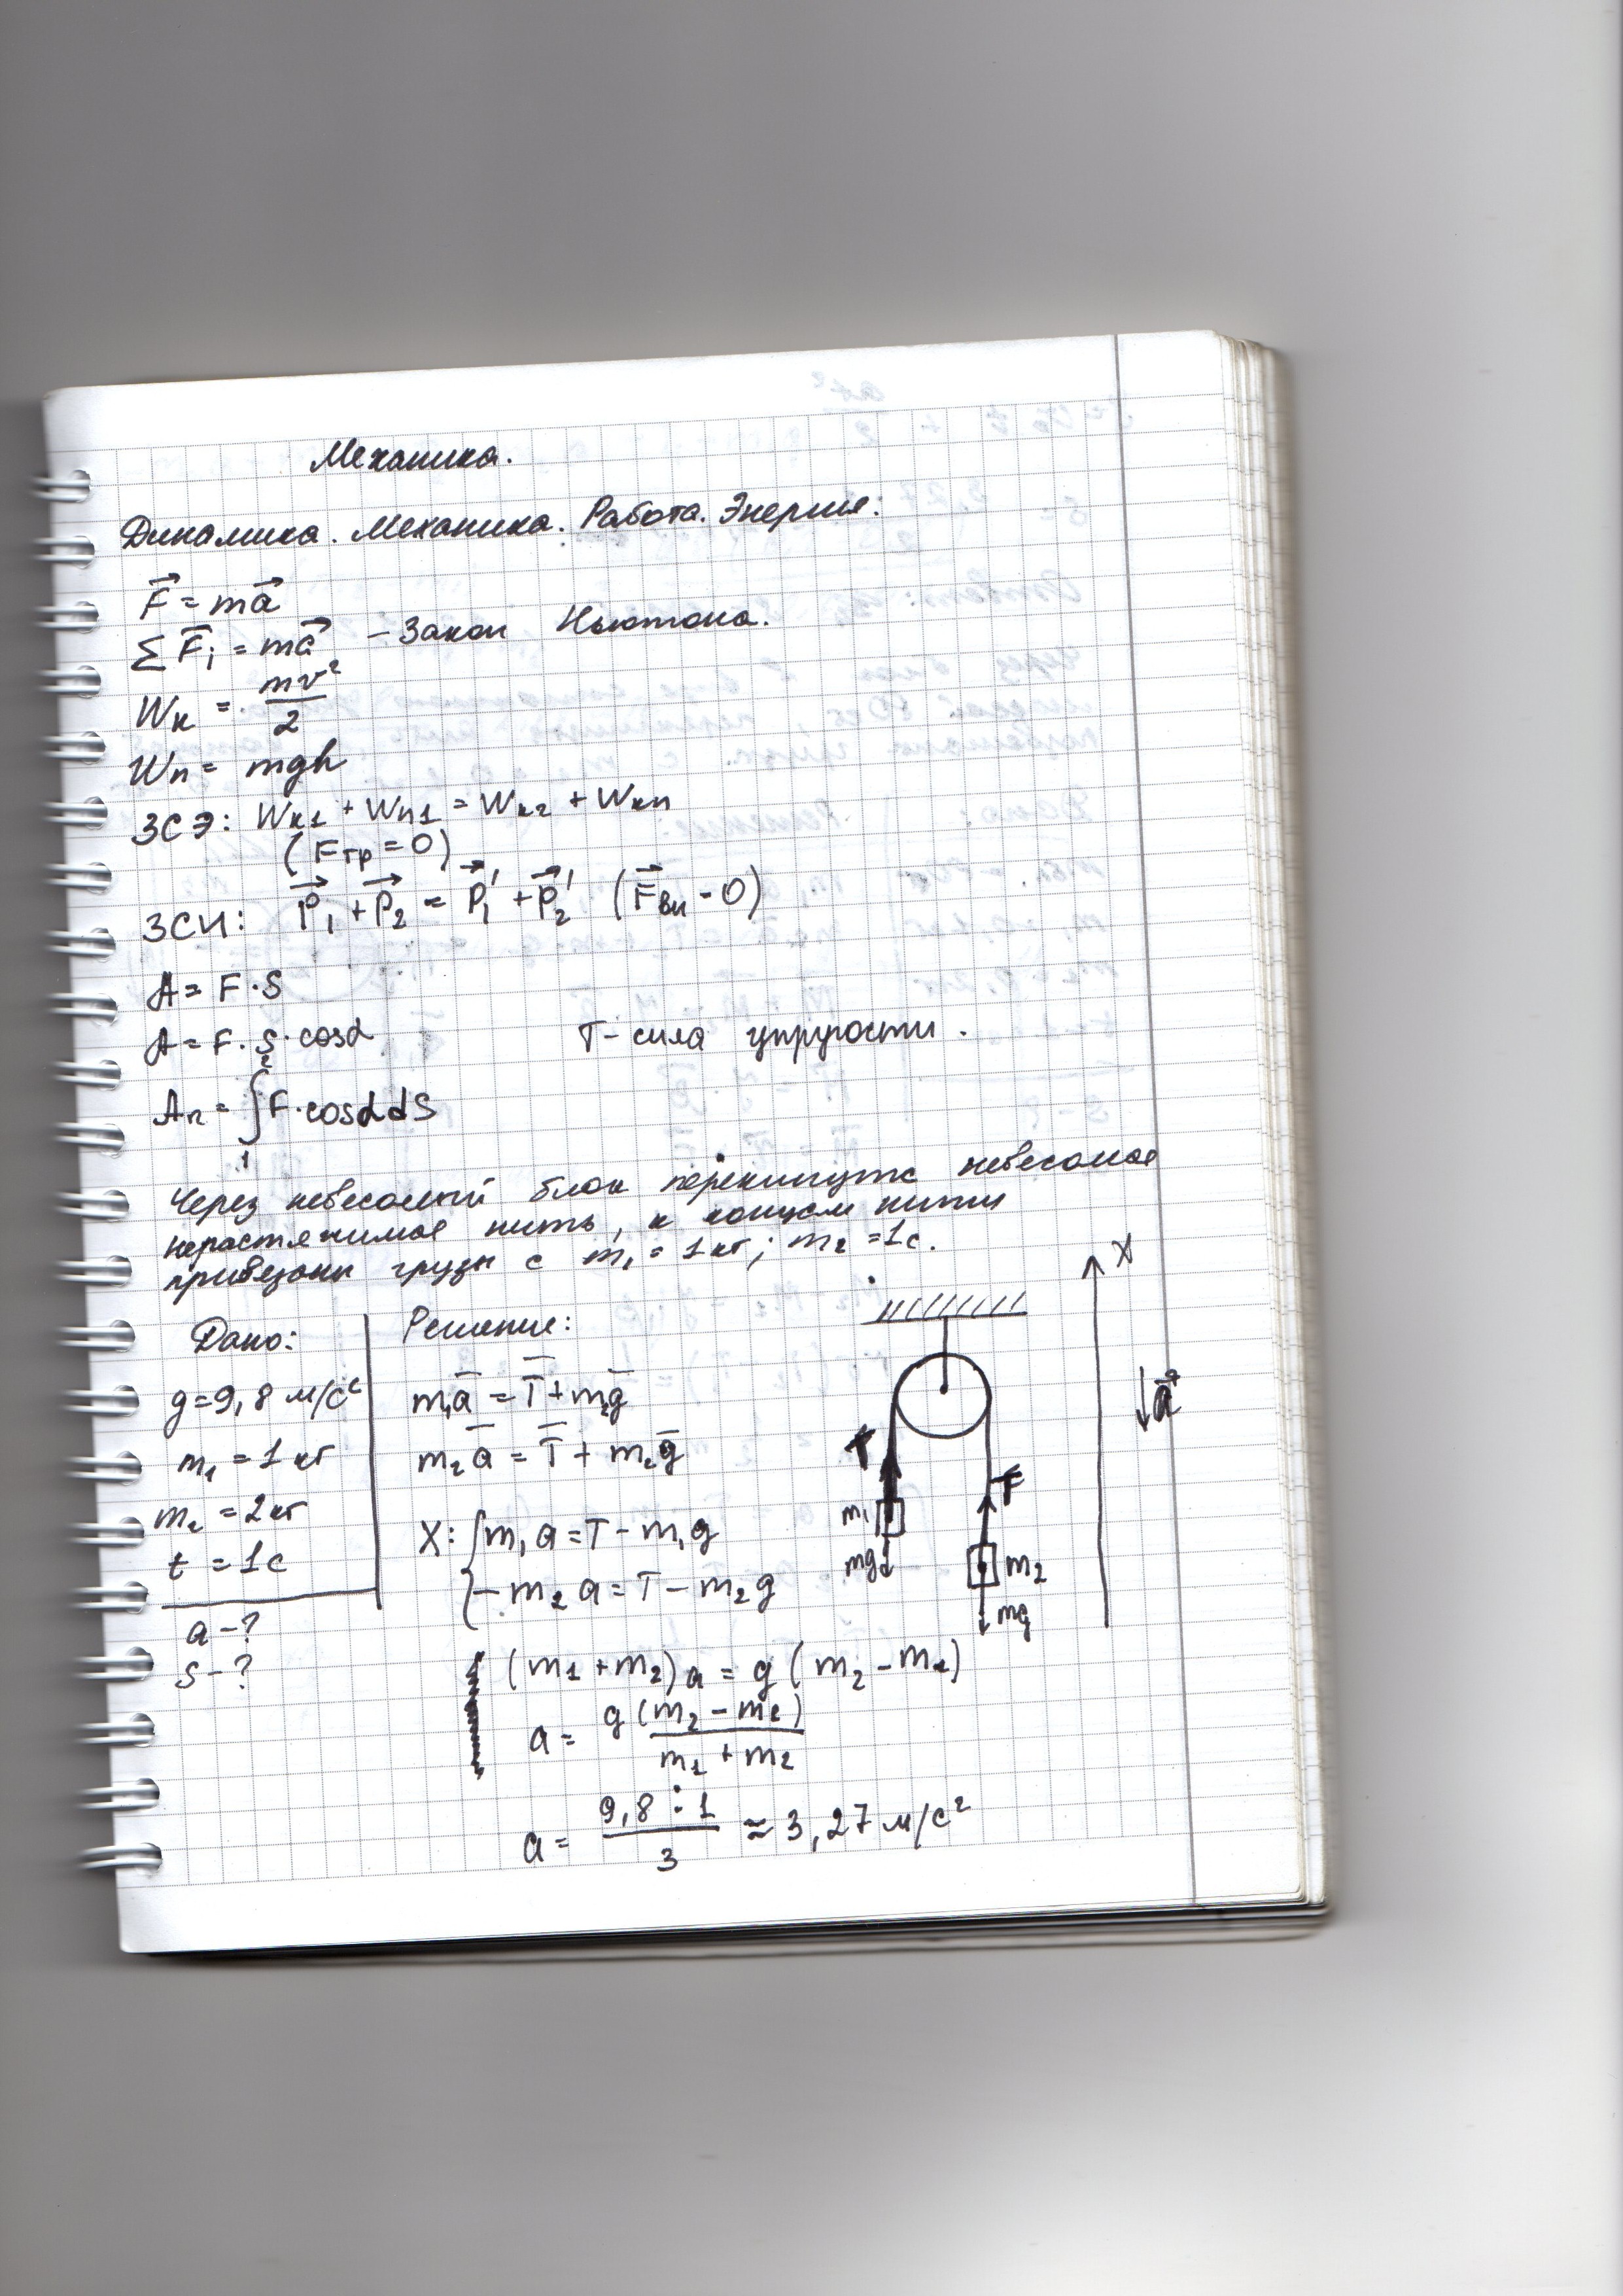 Механика.
Динамика. Механика. Работа. Энергия:
F = ma
Σ Fi = ma - Закон Ньютона.
Wк = mv²/2
Wп = mgh
ЗСЭ: Wк1 + Wп1 = Wк2 + Wкп
(Fтр = 0)
ЗСИ: P1 + P2 = P1' + P2' (Fвн - 0)
A = F · S
A = F · S · cosα
T - сила упругости.
Aп = ∫₁² F · cosα dS
Через невесомый блок перекинута невесомая
нерастяжимая нить, к концам нити
привязаны грузы с m1 = 1 кг; m2 = 1с.
Дано:
g = 9,8 м/с²
m1 = 1 кг
m2 = 2 кг
t = 1с
a - ?
S - ?
Решение:
m1a = T + m2g
m2a = T + m2g
X: { m1a = T - m1g
- m2a = T - m2g
(m1 + m2)a = g(m2 - m1)
a = g(m2 - m1)/(m1 + m2)
a = 9,8 · 1/3 ≈ 3,27 м/с²
X
a
T
F
m1
mg
m2
mg